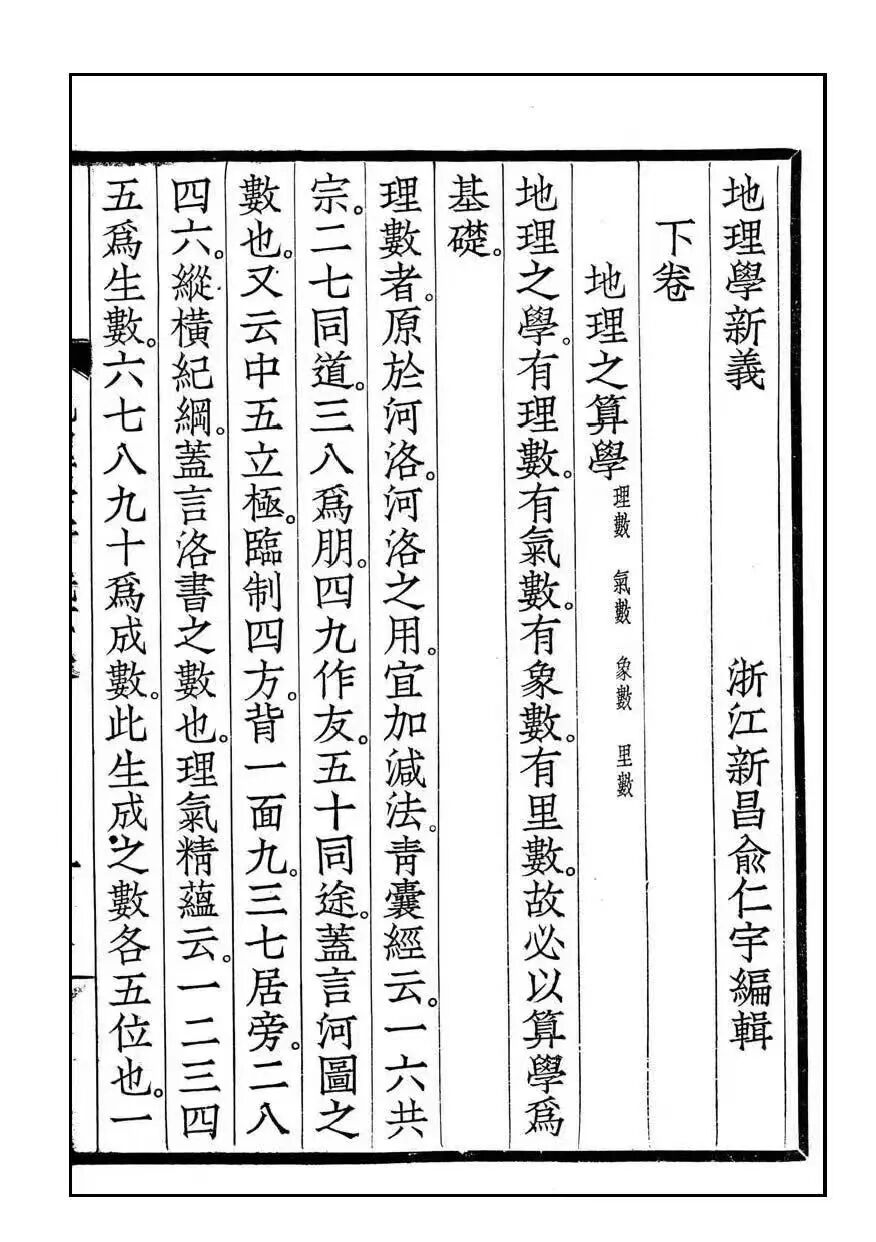 地理學新義
浙江新昌俞仁宇編輯
下卷
地理之算學 理數 氣數 象數 里數
地理之學。有理數。有氣數。有象數。有里數。故必以算學爲
基礎。
理數者。原於河洛。河洛之用。宜加減法。靑囊經云。一六共
宗。二七同道。三八爲朋。四九作友。五十同途。蓋言河圖之
數也。又云中五立極。臨制四方。背一面九。三七居旁。二八
四六。縱橫紀綱。蓋言洛書之數也。理氣精蘊云。一二三四
五爲生數。六七八九十爲成數。此生成之數各五位也。一